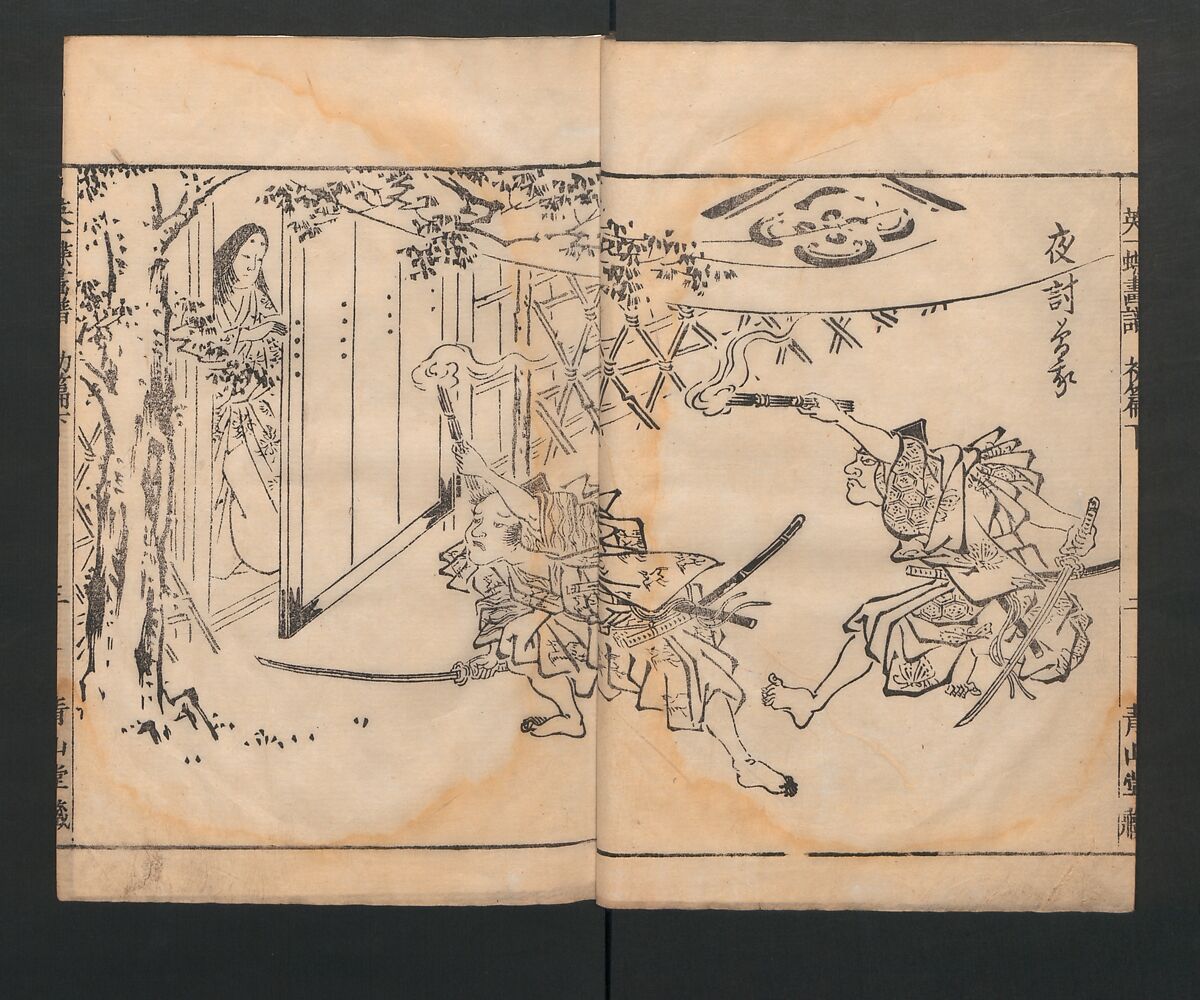 夜討曽我
英一蝶畫譜 初篇下
二
青山堂藏
英一蝶畫譜 初篇下
三
青山堂藏